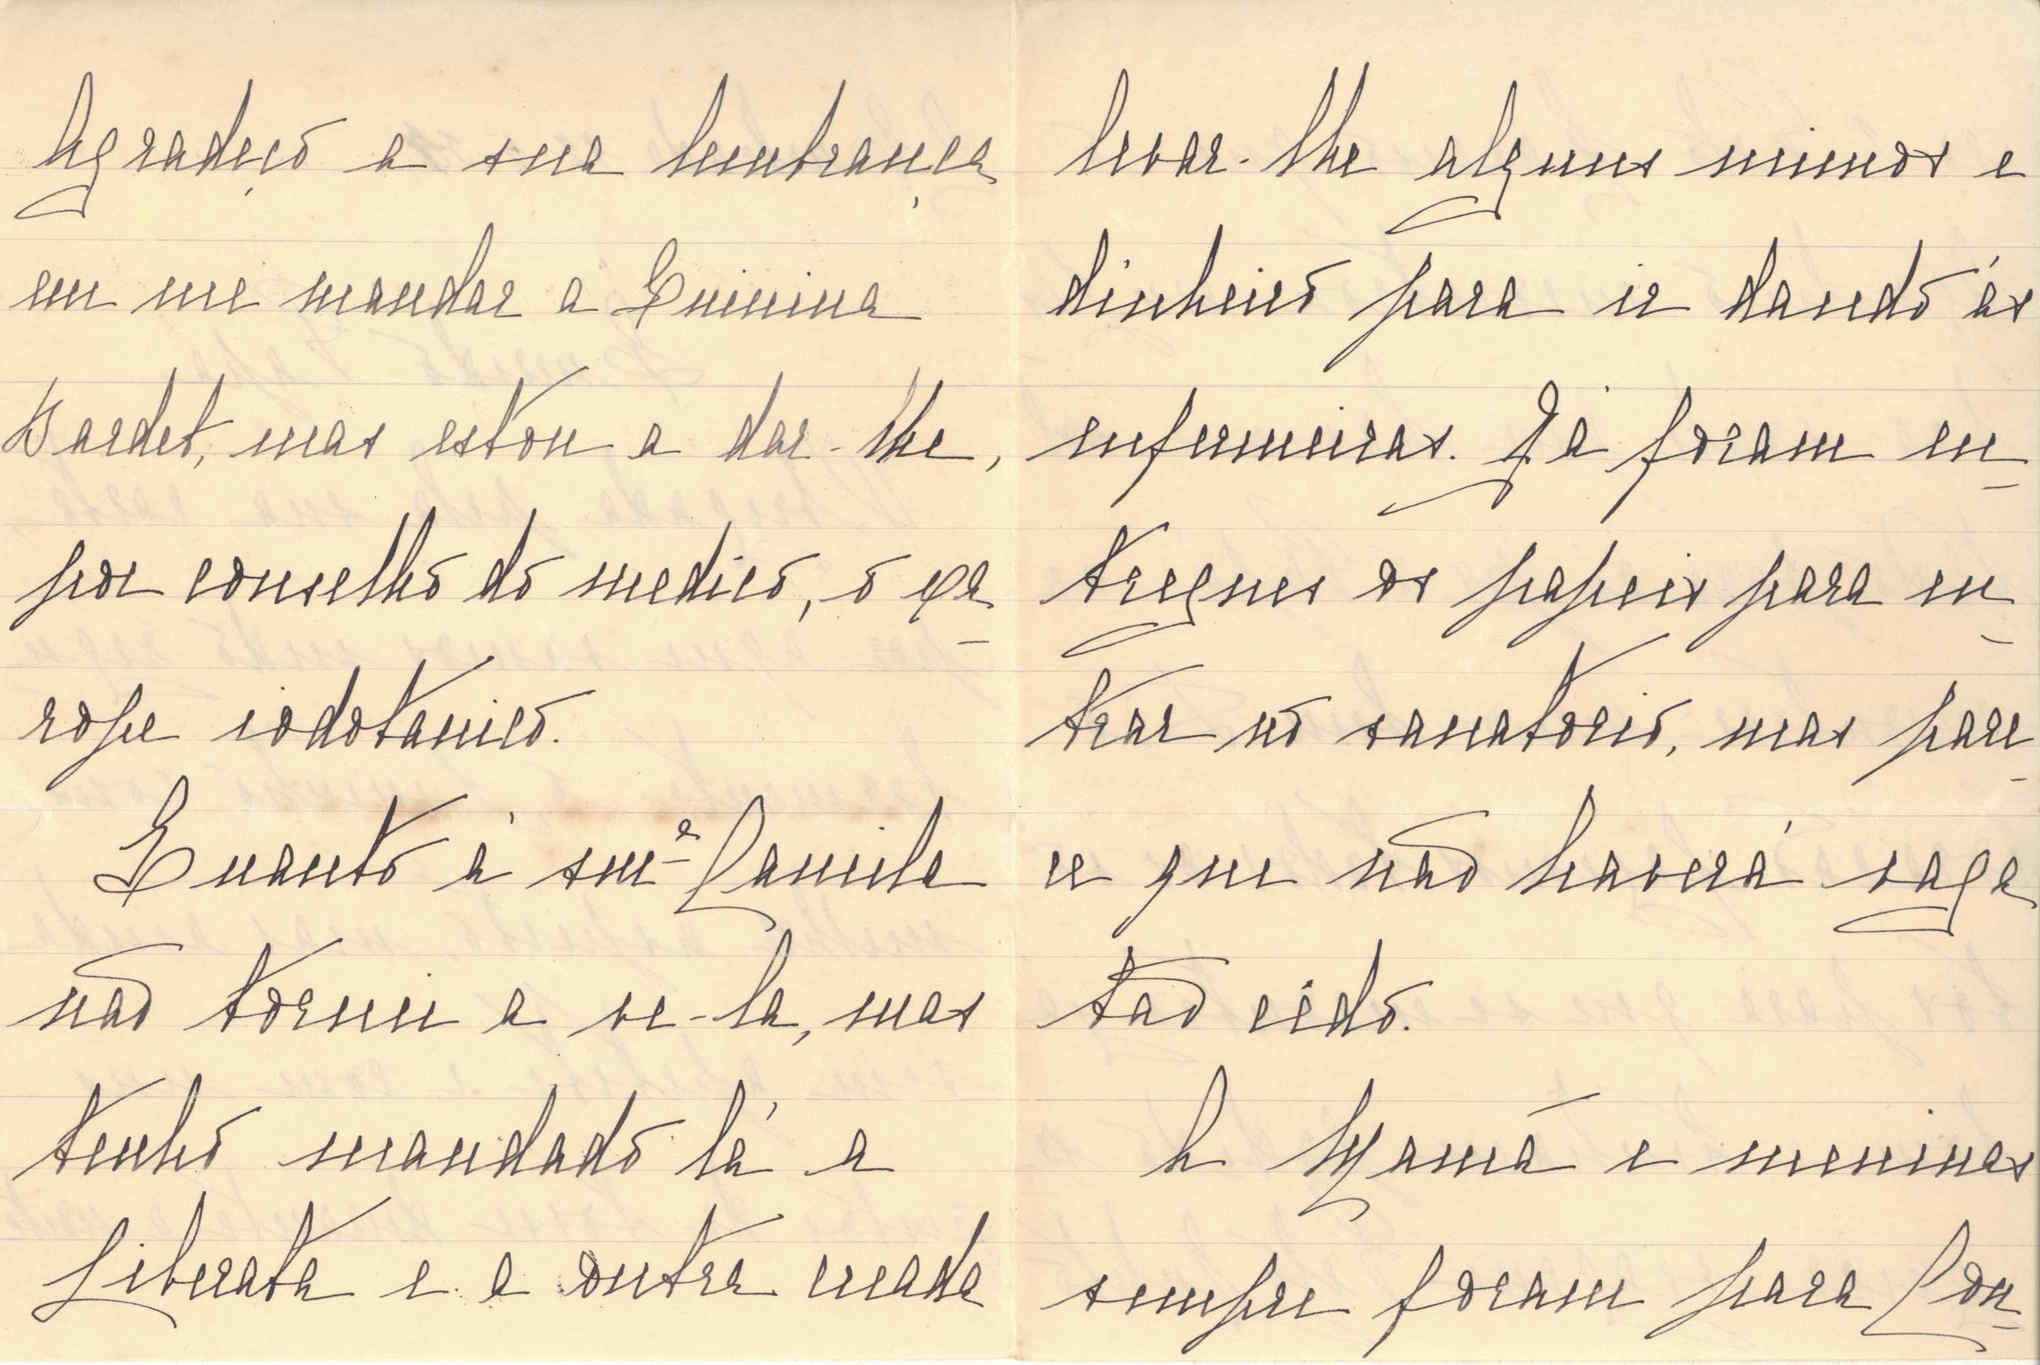 Agradeço a sua lembrança
em me mandar a Quinina
Bardet, mas estou a dar-lhe,
por conselho do medico, o xa-
rope iodotanico.
Quanto à snrª Camila
não tornei a ve-la, mas
tenho mandado lá a
Liberata e a outra creada
levar-lhe alguns mimos e
dinheiro para ir dando ás
enfermeiras. Já foram en-
tregues os papeis para en-
trar no sanatorio, mas pare-
ce que não haverá vaga
tão cêdo.
A Mamã e meninas
sempre foram para Cou-